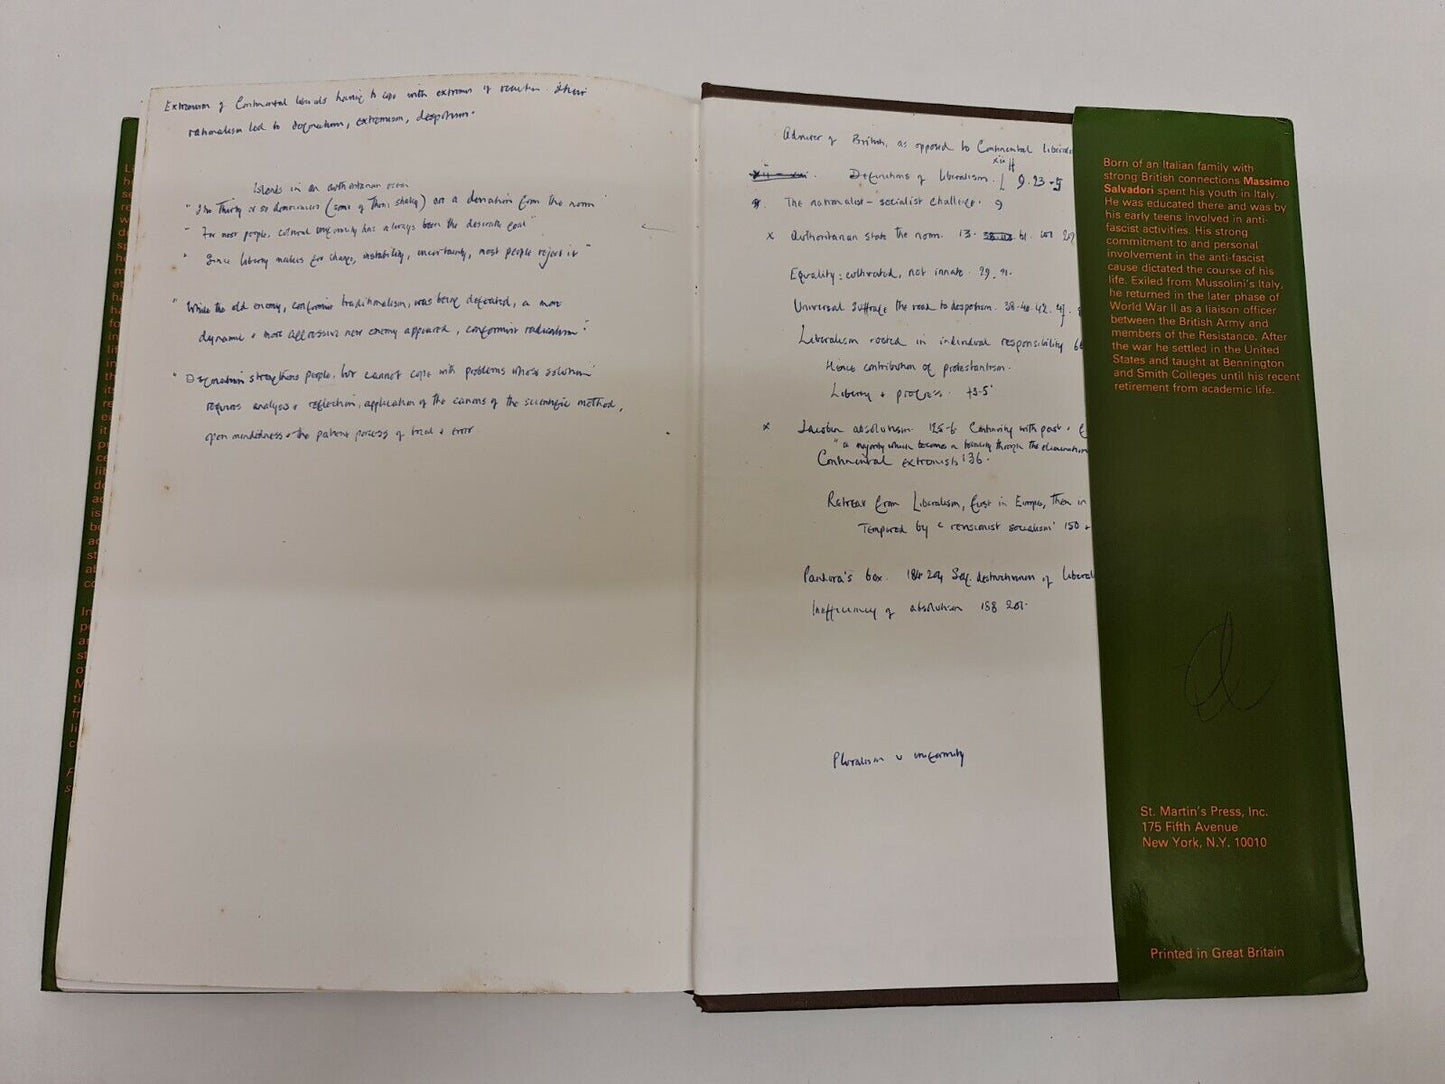 Extremism of Continental liberals having to cope with extremes of reaction. Their
rationalism led to dogmatism, extremism, despotism.
Islands in an authoritarian ocean
"The thirty or so democracies (some of them shaky) are a deviation from the norm"
"For most people, cultural uniformity has always been the desirable goal"
"Since liberty makes for change, instability, uncertainty, most people reject it"
"While the old enemy, conformist traditionalism, was being defeated, a more
dynamic + more aggressive new enemy appeared, conformist radicalism."
"Dogmatism strengthens people, but cannot cope with problems whose solution
requires analysis + reflection, application of the canons of the scientific method,
open mindedness + the patient process of trial + error
Admirer of British, as opposed to Continental liberalis
xii
Definitions of liberalism. 9. 23-5
The nationalist-socialist challenge. 9
x Authoritarian state the norm. 13. 61. 201 209
Equality: cultivated, not innate. 29.
Universal Suffrage the road to despotism. 38. 40. 42. 47.
Liberalism rooted in individual responsibility 66
Hence contribution of protestantism.
Liberty + progress. 73-5
x Jacobin absolutism. 125-6 Continuity with past.
"a majority which becomes a totality through the elimination
Continental extremists 136.
Retreat from Liberalism, first in Europe, then in
Tempered by 'revisionist socialism' 150 +
Pandora's box. 184 204 Self destructiveness of Liberal
Inefficiency of absolutism 188 201.
Pluralism v uniformity
Born of an Italian family with
strong British connections Massimo
Salvadori spent his youth in Italy.
He was educated there and was by
his early teens involved in anti-
fascist activities. His strong
commitment to and personal
involvement in the anti-fascist
cause dictated the course of his
life. Exiled from Mussolini's Italy,
he returned in the later phase of
World War II as a liaison officer
between the British Army and
members of the Resistance. After
the war he settled in the United
States and taught at Bennington
and Smith Colleges until his recent
retirement from academic life.
St. Martin's Press, Inc.
175 Fifth Avenue
New York, N.Y. 10010
Printed in Great Britain